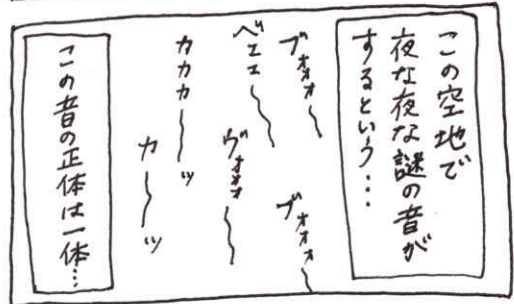 この空地で
夜な夜な謎の音が
するという...
ブォォォ〜
ブォォォ〜
ベエエ〜
ヴォォォ〜
カカカ〜ッ
カ〜ッ
この音の正体は一体...